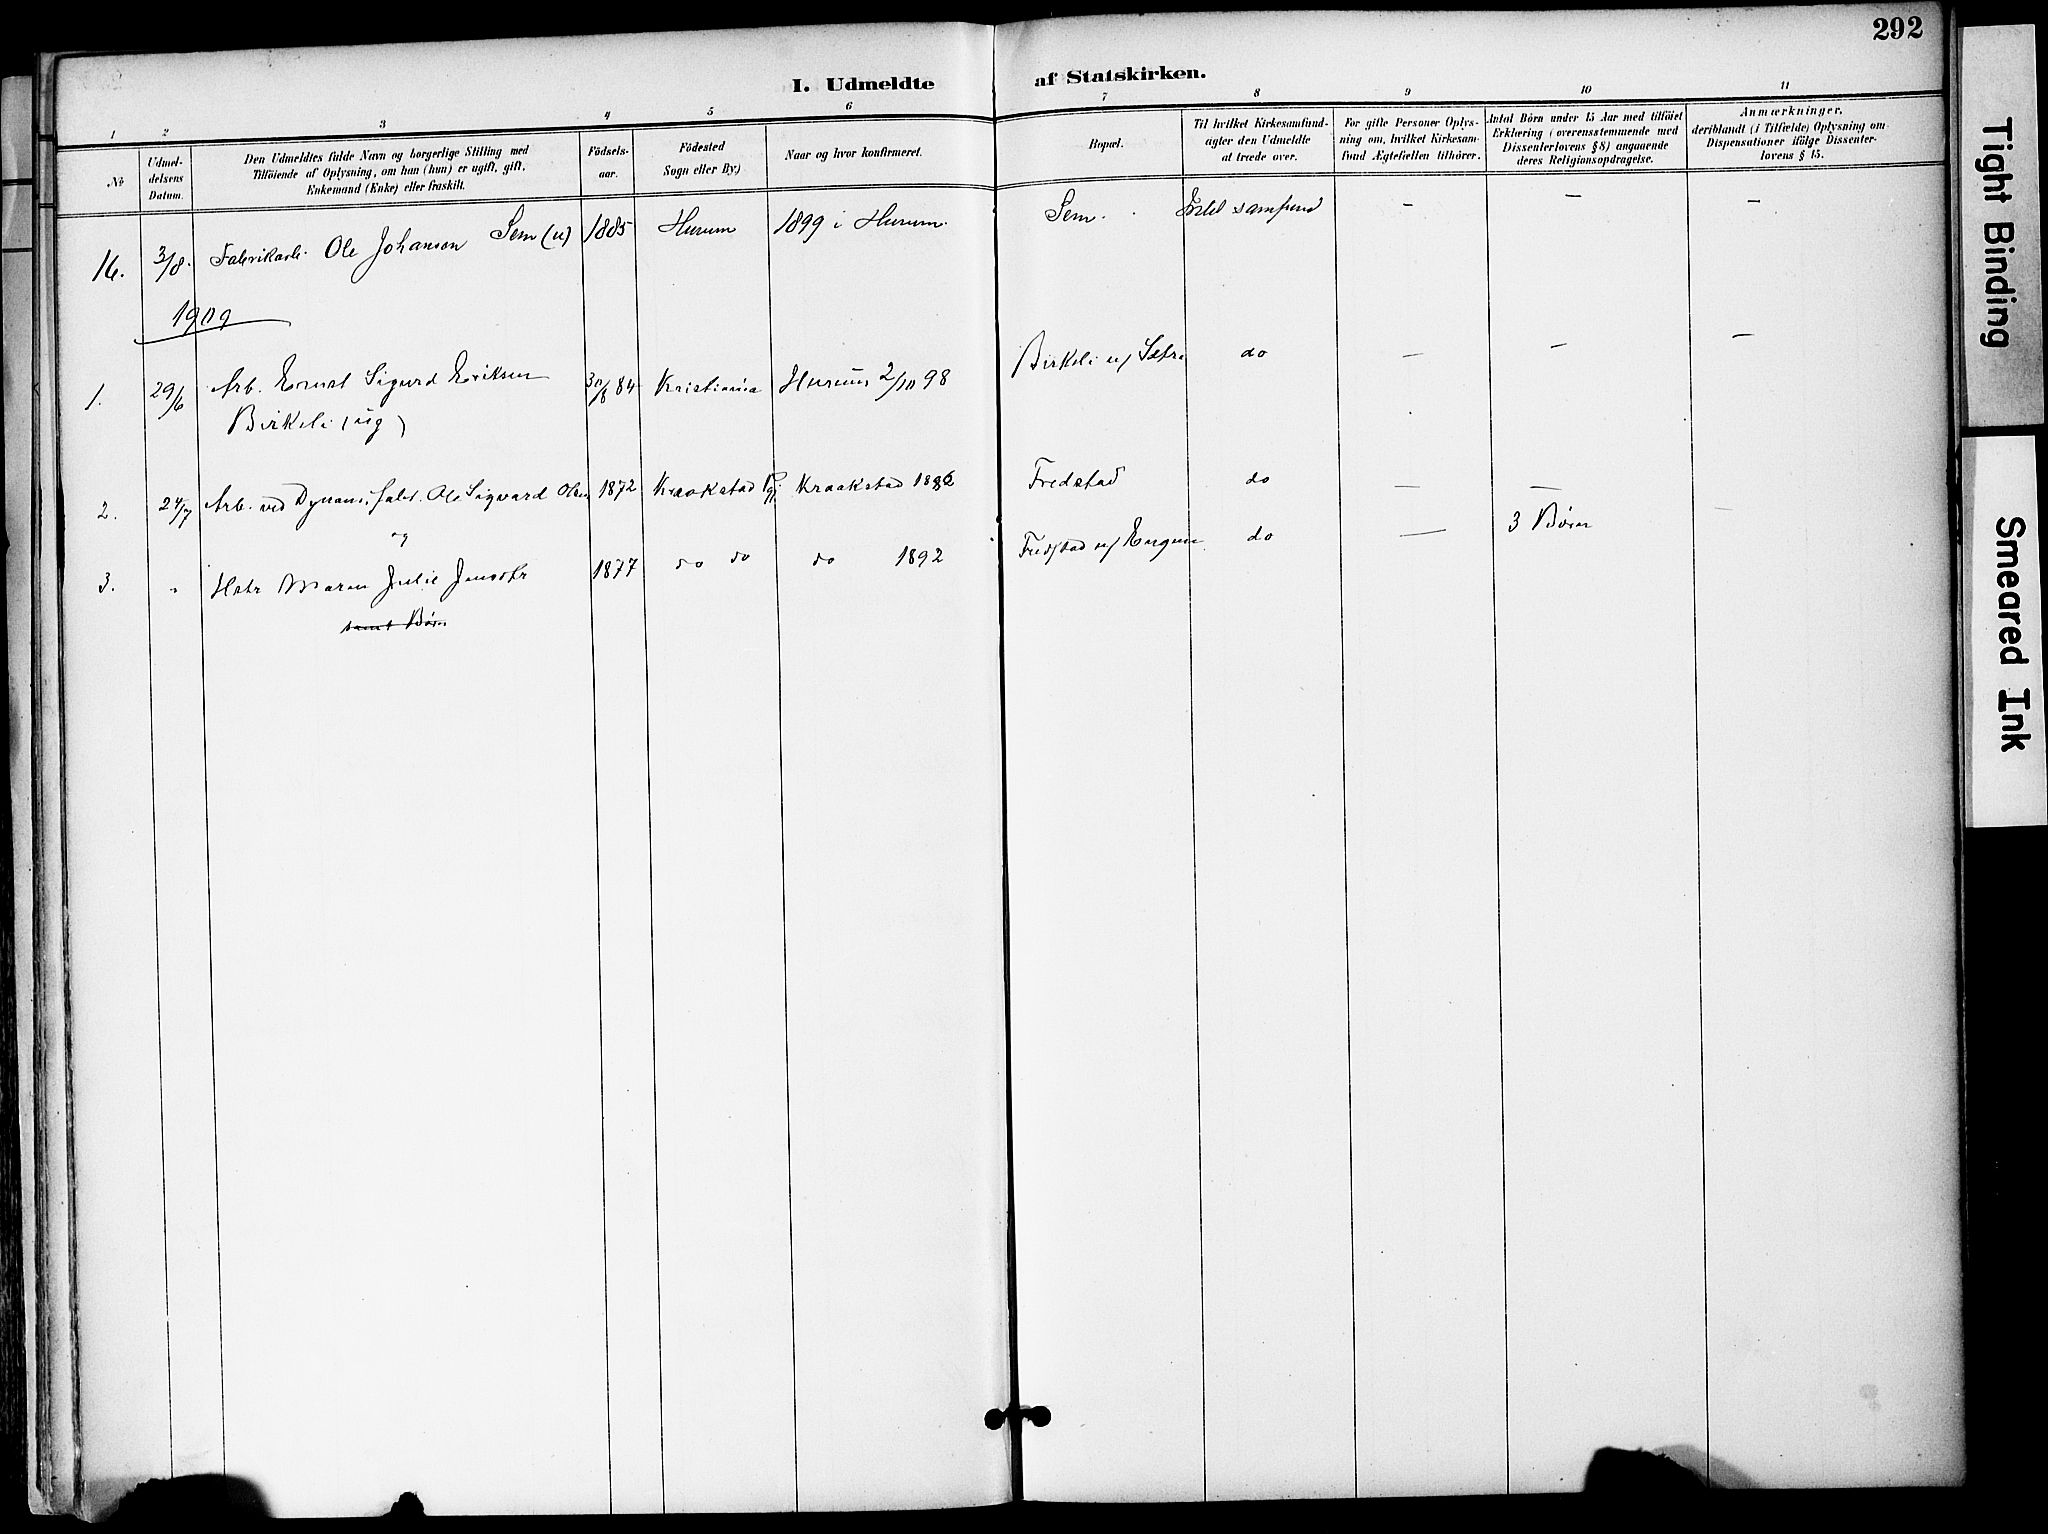 292
I. Udmeldte af Statskirken.
1 2 3 4 5 6 7 8 9 10 11
No
Udmel-
delsens
Datum.
Den Udmeldtes fulde Navn og borgerlige Stilling med
Tilföiende af Oplysning, om han (hun) er ugift, gift,
Enkemand (Enke) eller fraskilt.
Födsels-
aar.
Födested
Sogn eller By.)
Naar og hvor konfirmeret.
Bopæl.
Til hvilket Kirkesamfund
agter den Udmeldte
at træde over.
For gifte Personer Oplys-
ning om, hvilket Kirkesam-
fund Ægtefællen tilhörer.
Antal Börn under 15 Aar med tilföiet
Erklæring (overensstemmende med
Dissenterlovens § 8) angaaende
deres Religionsopdragelse.
Anmærkninger,
deriblandt (i Tilfælde) Oplysning om
Dispensationer ifölge Dissenter-
lovens § 15.
16. 3/8. Fabrikarb. Ole Johanson Sem (u) 1885 Hurum 1899 i Hurum. Sem. samfund - - -
1909
1. 29/6 Arb. Ernst Sigurd Eriksen 30/8 84 Kristiania Hurum 2/10 98 Birkeli u/ Sætre do - - -
Birkeli (ug)
2. 24/7 Arb. ved Dynamitfabr. Ole Sigvard Olsen 1872 Kraakstad Pgj. Kraakstad 1886 Fredstad do - -
og
3. " Hstr Maren Julie Jensdtr 1877 do do do 1892 Fredstad u/ Engene do - 3 Børn
samt Børn
Tight Binding
Smeared Ink